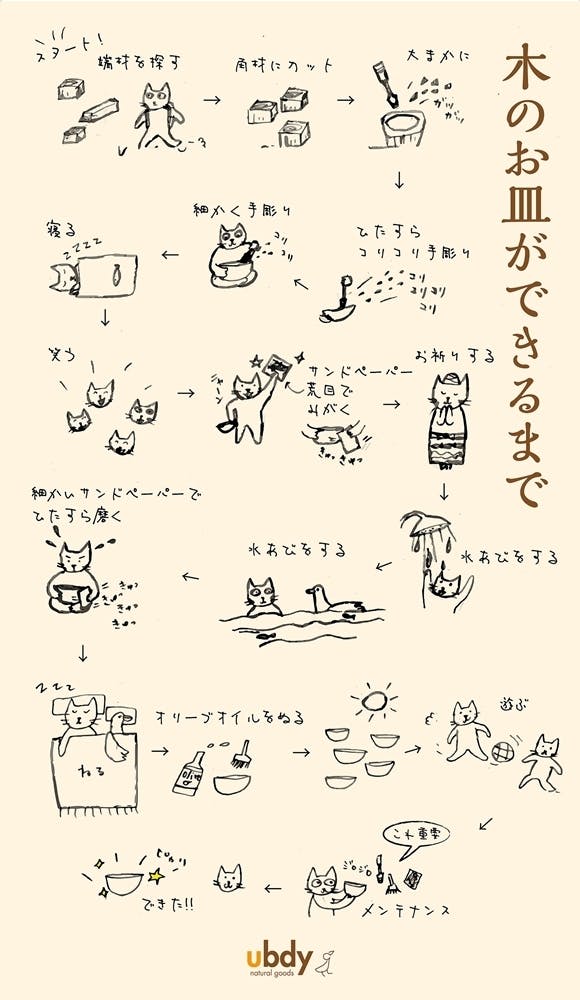 木のお皿ができるまで
スタート!
端材を探す
角材にカット
大まかに
ガリ
ガリ
ひたすら
コリコリ手彫り
コリ
コリコリ
コリ
細かく手彫り
コリ
コリ
寝る
zzzz
笑う
ジャーン
サンドペーパー
荒目で
みがく
きゅっきゅっ
お祈りする
水あびをする
水あびをする
細かいサンドペーパーで
ひたすら磨く
きゅっ
きゅっ
きゅっ
きゅっ
zzz
ねる
オリーブオイルをぬる
Olive
遊ぶ
これ重要
ジロジロ
メンテナンス
ピカリ
できた!!
ubdy
natural goods